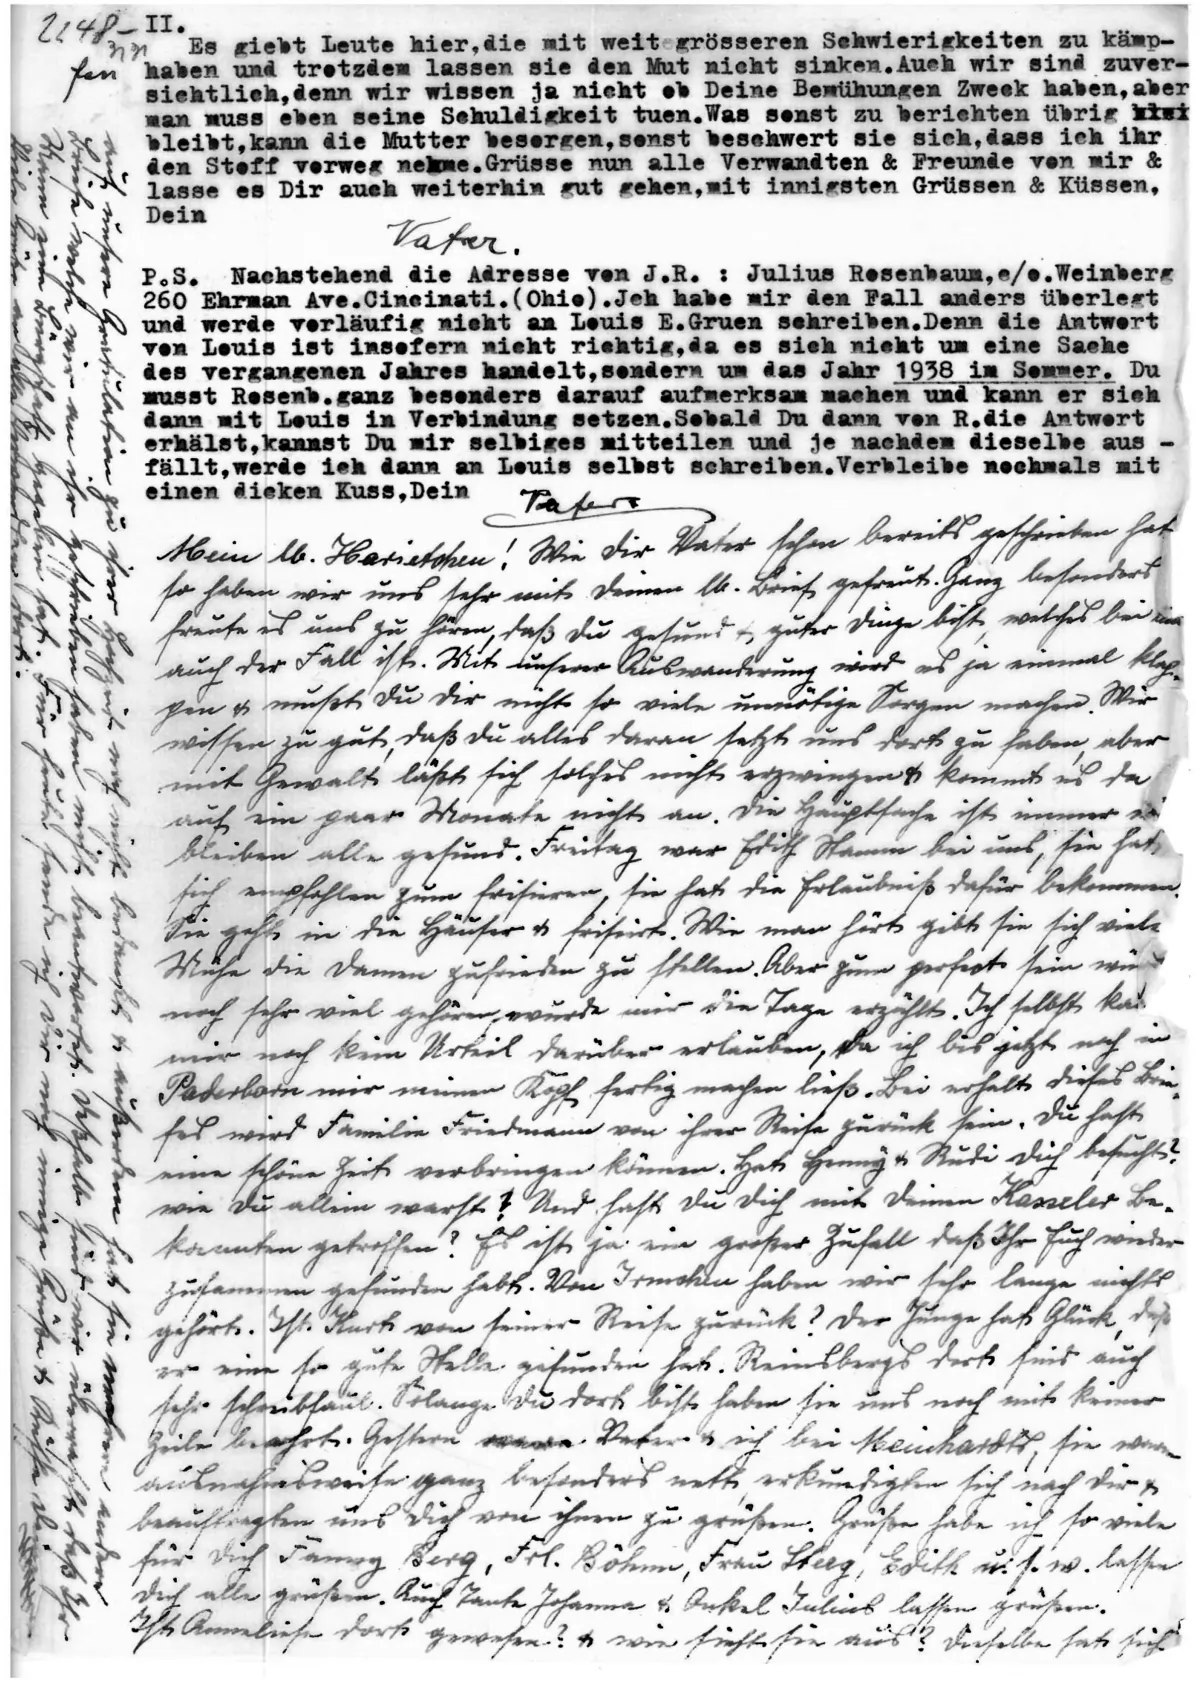 2248-
II.
Es giebt Leute hier,die mit weit grösseren Schwierigkeiten zu kämp-
fen haben und trotzdem lassen sie den Mut nicht sinken.Auch wir sind zuver-
sichtlich,denn wir wissen ja nicht ob Deine Bemühungen Zweck haben,aber
man muss eben seine Schuldigkeit tuen.Was sonst zu berichten übrig
bleibt,kann die Mutter besorgen,sonst beschwert sie sich,dass ich ihr
den Stoff vorweg nehme.Grüsse nun alle Verwandten & Freunde von mir &
lasse es Dir auch weiterhin gut gehen,mit innigsten Grüssen & Küssen,
Dein
Vater.
P.S. Nachstehend die Adresse von J.R. : Julius Rosenbaum,c/o.Weinberg
260 Ehrman Ave.Cincinati.(Ohio).Jch habe mir den Fall anders überlegt
und werde vorläufig nicht an Louis E.Gruen schreiben.Denn die Antwort
von Louis ist insofern nicht richtig,da es sich nicht um eine Sache
des vergangenen Jahres handelt,sondern um das Jahr 1938 im Sommer. Du
musst Rosenb.ganz besonders darauf aufmerksam machen und kann er sich
dann mit Louis in Verbindung setzen.Sobald Du dann von R.die Antwort
erhälst,kannst Du mir selbiges mitteilen und je nachdem dieselbe aus -
fällt,werde ich dann an Louis selbst schreiben.Verbleibe nochmals mit
einen dicken Kuss,Dein
Vater.
Mein lb. Harietchen! Wie dir Vater schon bereits geschrieben hat
so haben wir uns sehr mit deinen lb. Brief gefreut. Ganz besonders
freute es uns zu hören, daß du gesund & guter Dinge bist, welches bei uns
auch der Fall ist. Mit unserer Auswanderung wird es ja einmal klap-
pen & mußt du dir nicht so viele unnötige Sorgen machen. Wir
wissen zu gut, daß du alles daran setzt uns dort zu haben, aber
mit Gewalt läßt sich solches nicht erzwingen & kommt es da
auf ein paar Monate nicht an. Die Hauptsache ist immer wir
bleiben alle gesund. Freitag war Edith Stamm bei uns, sie hat
sich empfohlen zum frisieren, sie hat die Erlaubniß dafür bekommen.
Sie geht in die Häuser & frisiert. Wie man hört gibt sie sich viele
Mühe die Damen zufrieden zu stellen. Aber zum perfect sein würde
noch sehr viel gehören, wurde mir die Tage erzählt. Ich selbst kann
mir noch kein Urteil darüber erlauben, da ich bis jetzt noch in
Paderborn mir meinen Kopf fertig machen ließ. Bei erhalt dieses Brie-
fes wird Familie Friedmann von ihrer Reise zurück sein. Du hast
eine schöne Zeit verbringen können. Hat Henny & Rudi dich besucht?
wie du allein warst? Und hast du dich mit deinen Kasseler Be-
kannten getroffen? Es ist ja ein großer Zufall daß Ihr Euch wieder
zusammen gefunden habt. Von Irmchen haben wir sehr lange nichts
gehört. Ist Kurt von seiner Reise zurück? Der Junge hat Glück, daß
er eine so gute Stelle gefunden hat. Reinsbergs dort sind auch
sehr schreibfaul. Solange du dort bist haben sie uns noch mit keiner
Zeile beehrt. Gestern waren Vater & ich bei Meinhardts, sie waren
ausnahmsweise ganz besonders nett, erkundigten sich nach dir &
beauftragten uns dich von ihnen zu grüßen. Grüße habe ich so viele
für dich Fanny Berg, Frl. Böhm, Frau Sberg, Edith u. s. w. lassen
dich alle grüßen. Auch Tante Johanna & Onkel Julius lassen grüßen.
Ist Anneliese dort gewesen? & wie sieht sie aus? Dieselbe hat sich
auf unsere Gratulation zu ihrer Hochzeit noch nicht bedankt & außerdem hat sie mehrere andere
Briefe welche wir an ihr geschrieben haben nicht beantwortet. Deshalb sind wir überrascht daß Ihr
Kurt eine Bürgschaft gegeben hat. Für heute sende ich dir noch innige Grüße & Küsse
Viele Grüße an alle Verwandten dort.